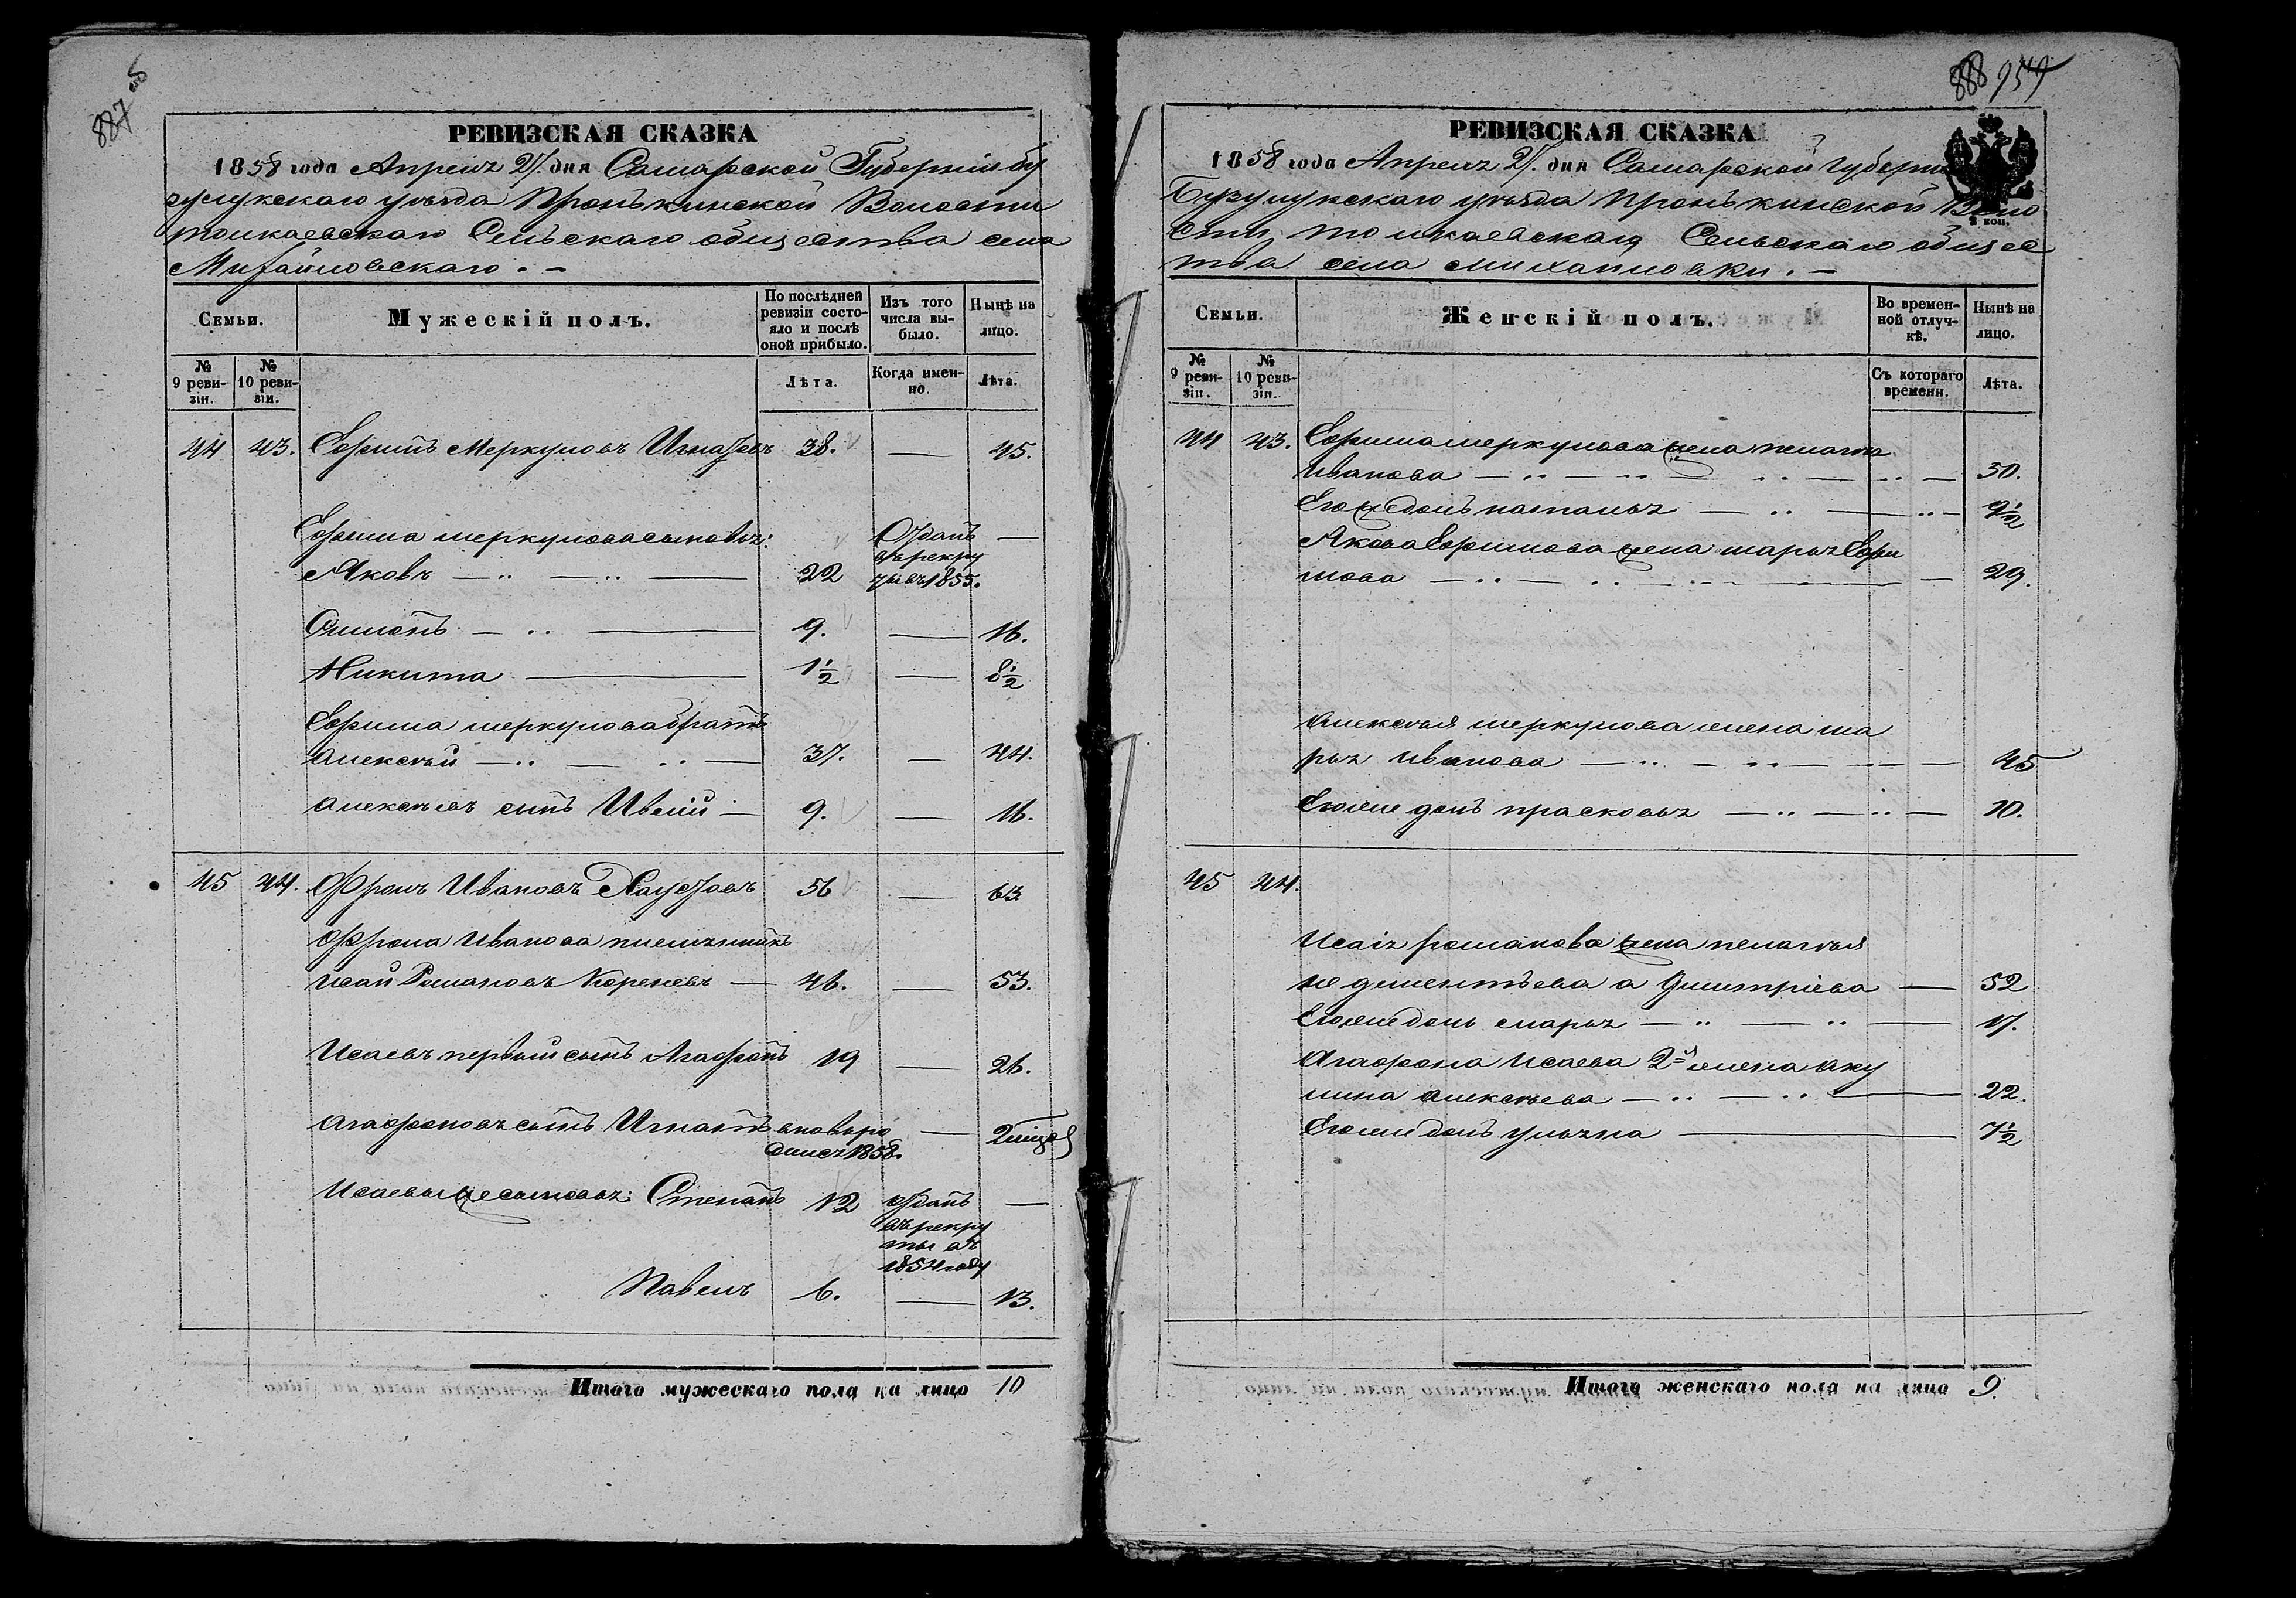 887 об
РЕВИЗСКАЯ СКАЗКА
1858 года Апреля 27. дня Самарской Губерніи Бу
зулукскаго уѣзда Пронькинской Волости
толкаевскаго Сельскаго общества села
Михайловскаго. –
Семьи.
Мужескій полъ.
По послѣдней ревизіи состояло и послѣ оной прибыло.
Изъ того числа выбыло.
Нынѣ на лицо.
№ 9 ревизіи.
№ 10 ревизіи.
Лѣта.
Когда именно.
Лѣта.
44 43. Ефимъ Меркуловъ 38. — 45.
Ефима меркулова сыновья:
Яковъ 22 Отданъ въ рекруты въ 1855. —
Симонъ 9. — 16.
Никита 1½ — 8½
Ефима меркулова братъ
Алексѣй 37. — 44.
Алексѣевъ сынъ 9. — 16.
45 44. Софронъ Ивановъ Хаустовъ 56 — 63
Софрона Иванова племянникъ
Исай Романовъ Кореневъ — 46. — 53.
Исаевъ первый сынъ Агафонъ 19 — 26.
Агафоновъ сынъ Игнатъ вновь ро
дился 1858. — 2 мѣсяц
Исаевы же сыновья: Степанъ 12 отданъ
въ рекру
ты въ
1854 году —
Павелъ 6. — 13.
Итого мужескаго пола на лицо 10
888 954
РЕВИЗСКАЯ СКАЗКА
1858 года Апреля 27. дня Самарской Губерніи
Бузулукскаго уѣзда Пронькинской Воло
сти толкаевскаго Сельскаго общес
тва села Михайловки. –
коп.
Семьи.
Женскій полъ.
Во временной отлучкѣ.
Нынѣ на лицо.
№ 9 ревизіи.
№ 10 ревизіи.
Съ котораго времени.
Лѣта.
44 43. Ефима меркулова жена пелагѣя
Иванова — 50.
Его же дочь наталья — 9½
Якова Ефимова жена марья Ефи
мова — 29.
Алексѣя меркулова жена ма
рья Иванова — 45
Его же дочь прасковья — 10.
45 44.
Исая романова жена пелагѣя
не дементьева а Дмитріева — 52
Его же дочь марья — 17.
Агафона Исаева 2я жена аку
лина алексѣева — 22.
Его же дочь ульяна — 7½
Итого женскаго пола на лицо 9.